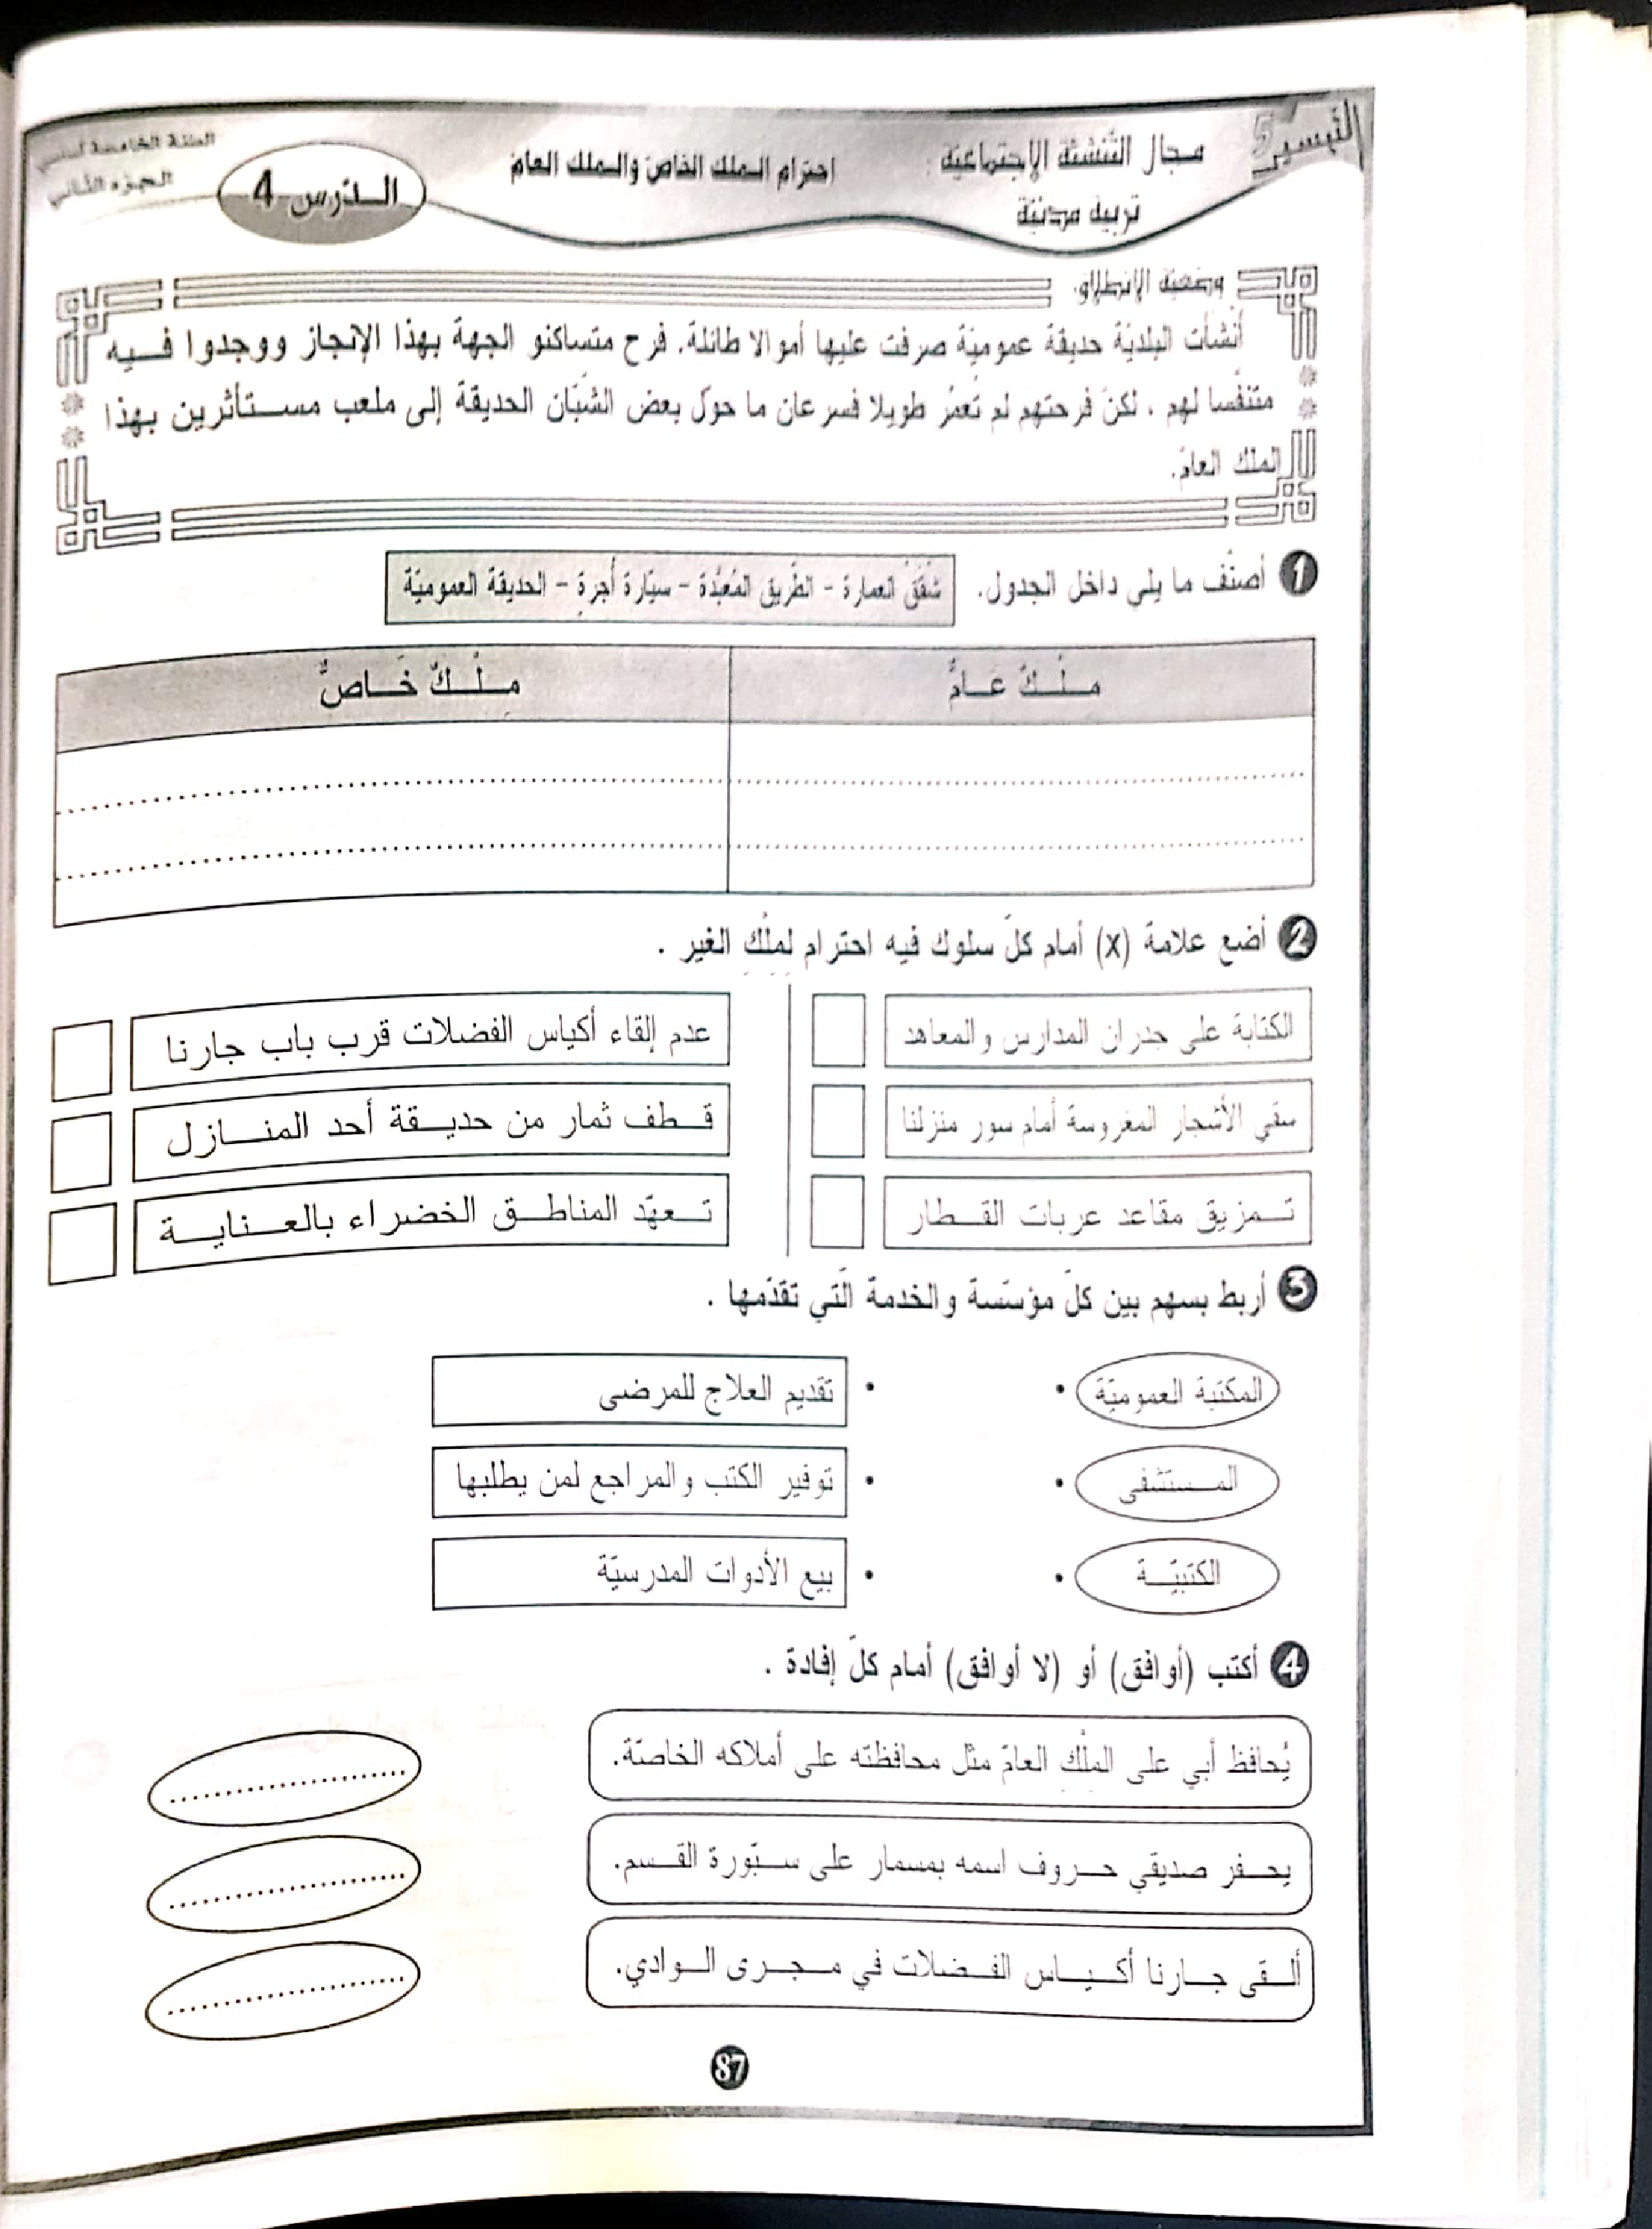 التيسير 5
مجال التنشئة الإجتماعية : احترام الملك الخاص والملك العام
تربية مدنيّة
الدّرس 4
السنة الخامسة أساسي
الجزء الثاني
وضعية الإنطلاق.
أنشأت البلديّة حديقة عموميّة صرفت عليها أموالا طائلة. فرح متساكنو الجهة بهذا الإنجاز ووجدوا فيه
متنفّسا لهم ، لكنّ فرحتهم لم تُعمّر طويلا فسرعان ما حوّل بعض الشبّان الحديقة إلى ملعب مستأثرين بهذا
الملك العامّ.
1 أصنّف ما يلي داخل الجدول. شُقَقُ العمارة - الطّريق المُعبّدة - سيّارة أُجرةٍ - الحديقة العموميّة
مِلْكٌ عَامٌّ
مِلْكٌ خَاصٌّ
2 أضع علامة (x) أمام كلّ سلوك فيه احترام لمِلْكِ الغير .
الكتابة على جدران المدارس والمعاهد
عدم إلقاء أكياس الفضلات قرب باب جارنا
سقي الأشجار المغروسة أمام سور منزلنا
قطف ثمار من حديقة أحد المنازل
تمزيق مقاعد عربات القطار
تعهّد المناطق الخضراء بالعناية
3 أربط بسهم بين كلّ مؤسّسة والخدمة الّتي تقدّمها .
المكتبة العموميّة • • تقديم العلاج للمرضى
المستشفى • • توفير الكتب والمراجع لمن يطلبها
الكتبيّة • • بيع الأدوات المدرسيّة
4 أكتب (أوافق) أو (لا أوافق) أمام كلّ إفادة .
يُحافظ أبي على المِلْكِ العامّ مثل محافظته على أملاكه الخاصّة.
يحفر صديقي حروف اسمه بمسمار على سبّورة القسم.
ألقى جارنا أكياس الفضلات في مجرى الوادي.
87